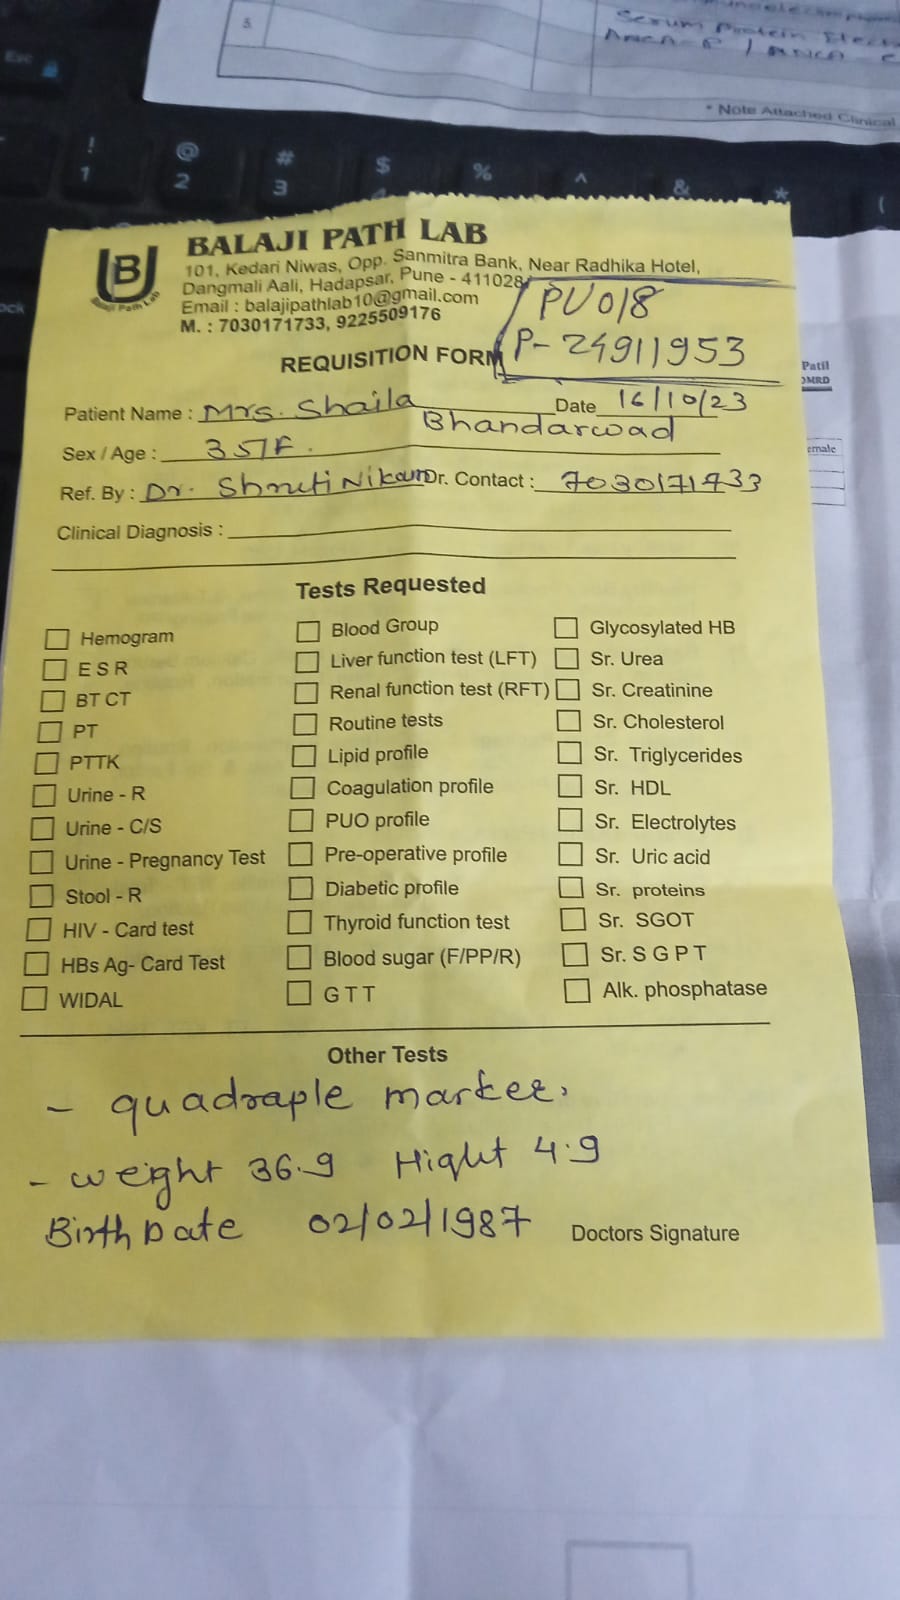 5.
Serum Protein
* Note Attached Clinical
Esc
! 1
@ 2
# 3
$ 4
%
^
&
*
(
B
Balaji Path Lab
BALAJI PATH LAB
101, Kedari Niwas, Opp. Sanmitra Bank, Near Radhika Hotel,
Dangmali Aali, Hadapsar, Pune - 411028
Email : balajipathlab10@gmail.com
M. : 7030171733, 9225509176
PU018
P-24911953
REQUISITION FORM
Patil
DMRD
emale
Patient Name : Mrs. Shaila Bhandarwad Date 16/10/23
Sex / Age : 35/F.
Ref. By : Dr. Shruti Nikam Dr. Contact : 7030171733
Clinical Diagnosis :
Tests Requested
Hemogram Blood Group Glycosylated HB
E S R Liver function test (LFT) Sr. Urea
BT CT Renal function test (RFT) Sr. Creatinine
PT Routine tests Sr. Cholesterol
PTTK Lipid profile Sr. Triglycerides
Urine - R Coagulation profile Sr. HDL
Urine - C/S PUO profile Sr. Electrolytes
Urine - Pregnancy Test Pre-operative profile Sr. Uric acid
Stool - R Diabetic profile Sr. proteins
HIV - Card test Thyroid function test Sr. SGOT
HBs Ag- Card Test Blood sugar (F/PP/R) Sr. S G P T
WIDAL G T T Alk. phosphatase
Other Tests
- quadraple marker.
- weight 36.9 Hight 4.9
Birth Date 02/02/1987 Doctors Signature